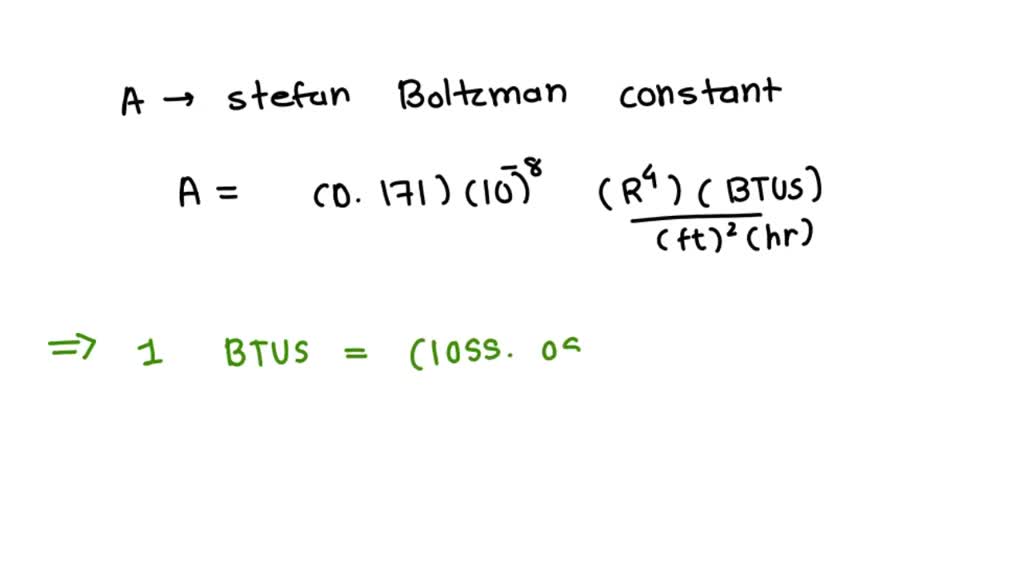 A → stefan Boltzman constant
A = (0.171)(10)⁻⁸ (R⁴)(BTUS)
(ft)² (hr)
⇒ 1 BTUS = (1055. 05